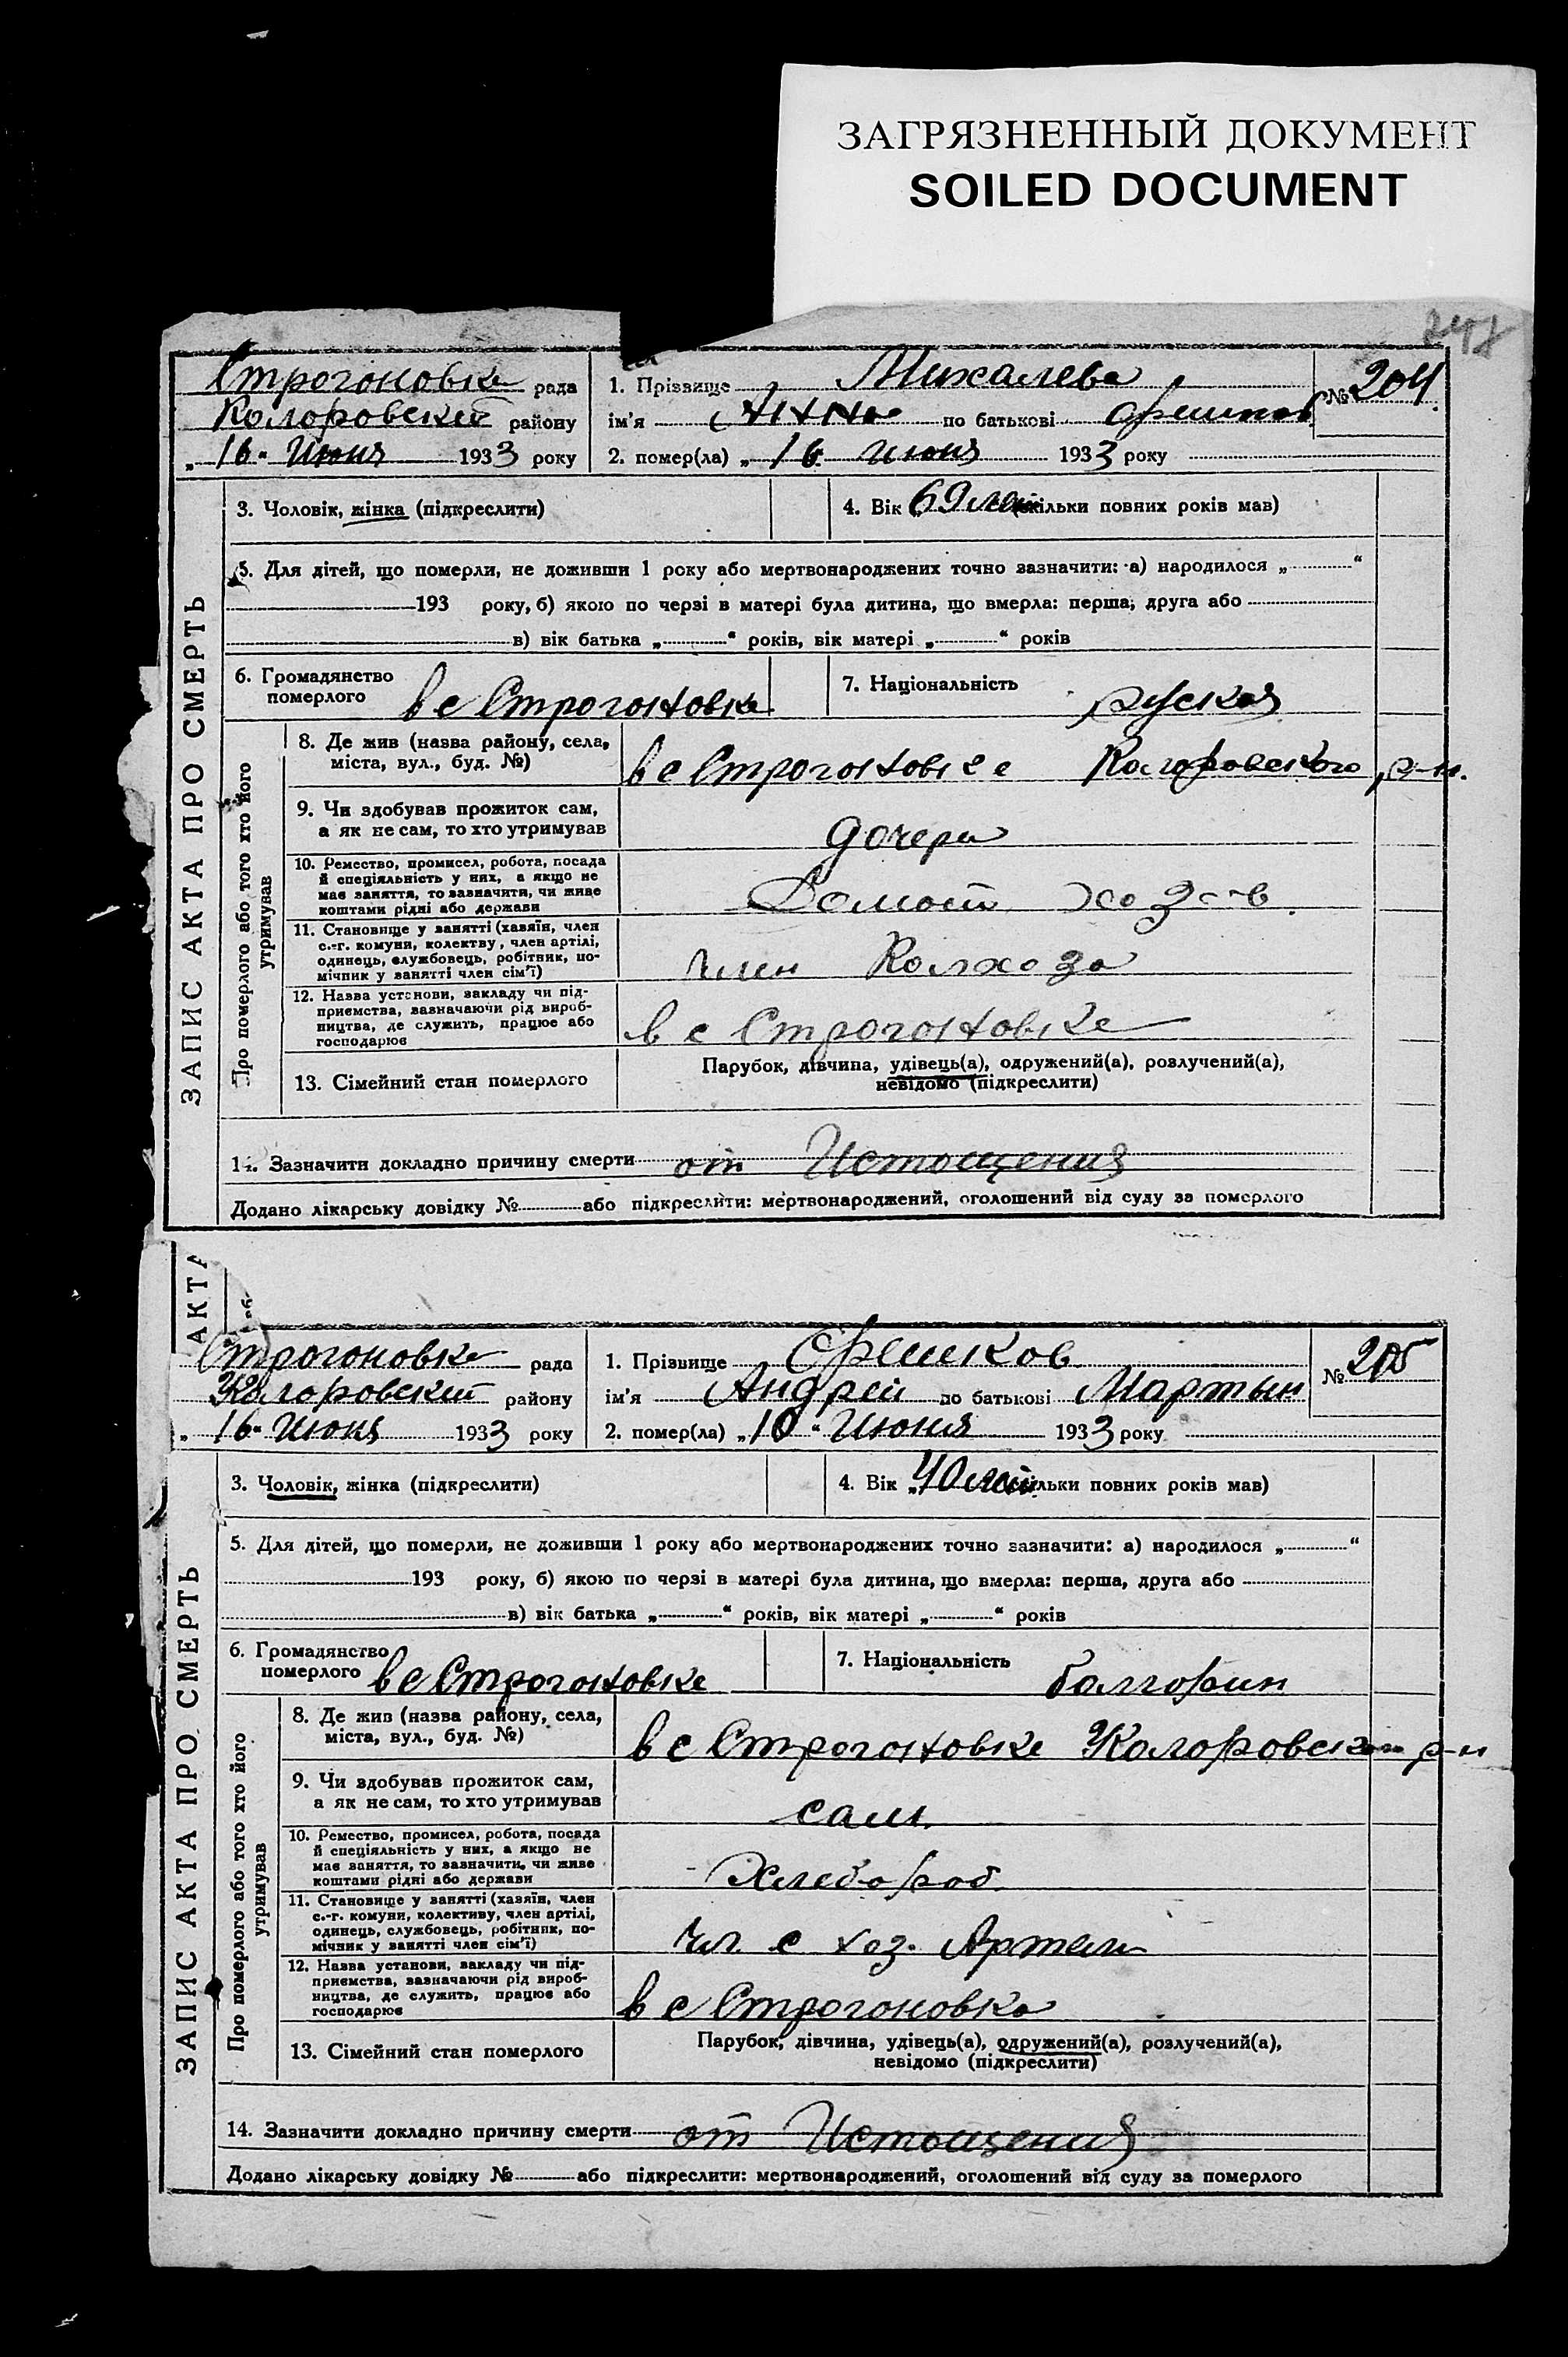 ЗАГРЯЗНЕННЫЙ ДОКУМЕНТ
SOILED DOCUMENT
ЗАПИС АКТА ПРО СМЕРТЬ
Строгоновка рада
1. Прізвище Михалева
№ 204
Коларовский району
ім'я Анна по батькові
„16" Июня 1933 року
2. помер(ла) „16 Июня 1933 року
3. Чоловік, жінка (підкреслити)
4. Вік „69 лет (скільки повних років мав)
5. Для дітей, що померли, не доживши 1 року або мертвонароджених точно зазначити: а) народилося „ “
193 року, б) якою по черзі в матері була дитина, що вмерла: перша, друга або
в) вік батька „ “ років, вік матері „ “ років
6. Громадянство
померлого в с Строгоновке
7. Національність руская
Про померлого або того хто його
утримував
8. Де жив (назва району, села,
міста, вул., буд. №)
в с Строгоновке Коларовского р-н.
9. Чи здобував прожиток сам,
а як не сам, то хто утримував
дочера
10. Ремество, промисел, робота, посада
й спеціяльність у них, а якщо не
має заняття, то зазначити, чи живе
коштами рідні або держави
11. Становище у занятті (хазяїн, член
с.-г. комуни, колективу, член артілі,
одинець, службовець, робітник, по-
мічник у занятті член сім'ї)
член Колхоза
12. Назва установи, закладу чи під-
приємства, зазначаючи рід вироб-
ництва, де служить, працює або
господарює
в с Строгоновке
13. Сімейний стан померлого
Парубок, дівчина, удівець(а), одружений(а), розлучений(а),
невідомо (підкреслити)
14. Зазначити докладно причину смерти от Истощения
Додано лікарську довідку № або підкреслити: мертвонароджений, оголошений від суду за померлого
АКТА
ЗАПИС АКТА ПРО СМЕРТЬ
Строгоновка рада
1. Прізвище Орешков
№ 205
Коларовский району
ім'я Андрей по батькові Мартын
„16" Июня 1933 року
2. помер(ла) „10" Июня 1933 року
3. Чоловік, жінка (підкреслити)
4. Вік „40 лет (скільки повних років мав)
5. Для дітей, що померли, не доживши 1 року або мертвонароджених точно зазначити: а) народилося „ “
193 року, б) якою по черзі в матері була дитина, що вмерла: перша, друга або
в) вік батька „ “ років, вік матері „ “ років
6. Громадянство
померлого в с Строгоновке
7. Національність болгорин
Про померлого або того хто його
утримував
8. Де жив (назва району, села,
міста, вул., буд. №)
в с Строгоновке Коларовского р-н
9. Чи здобував прожиток сам,
а як не сам, то хто утримував
сам.
10. Ремество, промисел, робота, посада
й спеціяльність у них, а якщо не
має заняття, то зазначити, чи живе
коштами рідні або держави
Хлебороб
11. Становище у занятті (хазяїн, член
с.-г. комуни, колективу, член артілі,
одинець, службовець, робітник, по-
мічник у занятті член сім'ї)
чл. с хоз. Артели
12. Назва установи, закладу чи під-
приємства, зазначаючи рід вироб-
ництва, де служить, працює або
господарює
в с Строгоновка
13. Сімейний стан померлого
Парубок, дівчина, удівець(а), одружений(а), розлучений(а),
невідомо (підкреслити)
14. Зазначити докладно причину смерти от Истощения
Додано лікарську довідку № або підкреслити: мертвонароджений, оголошений від суду за померлого